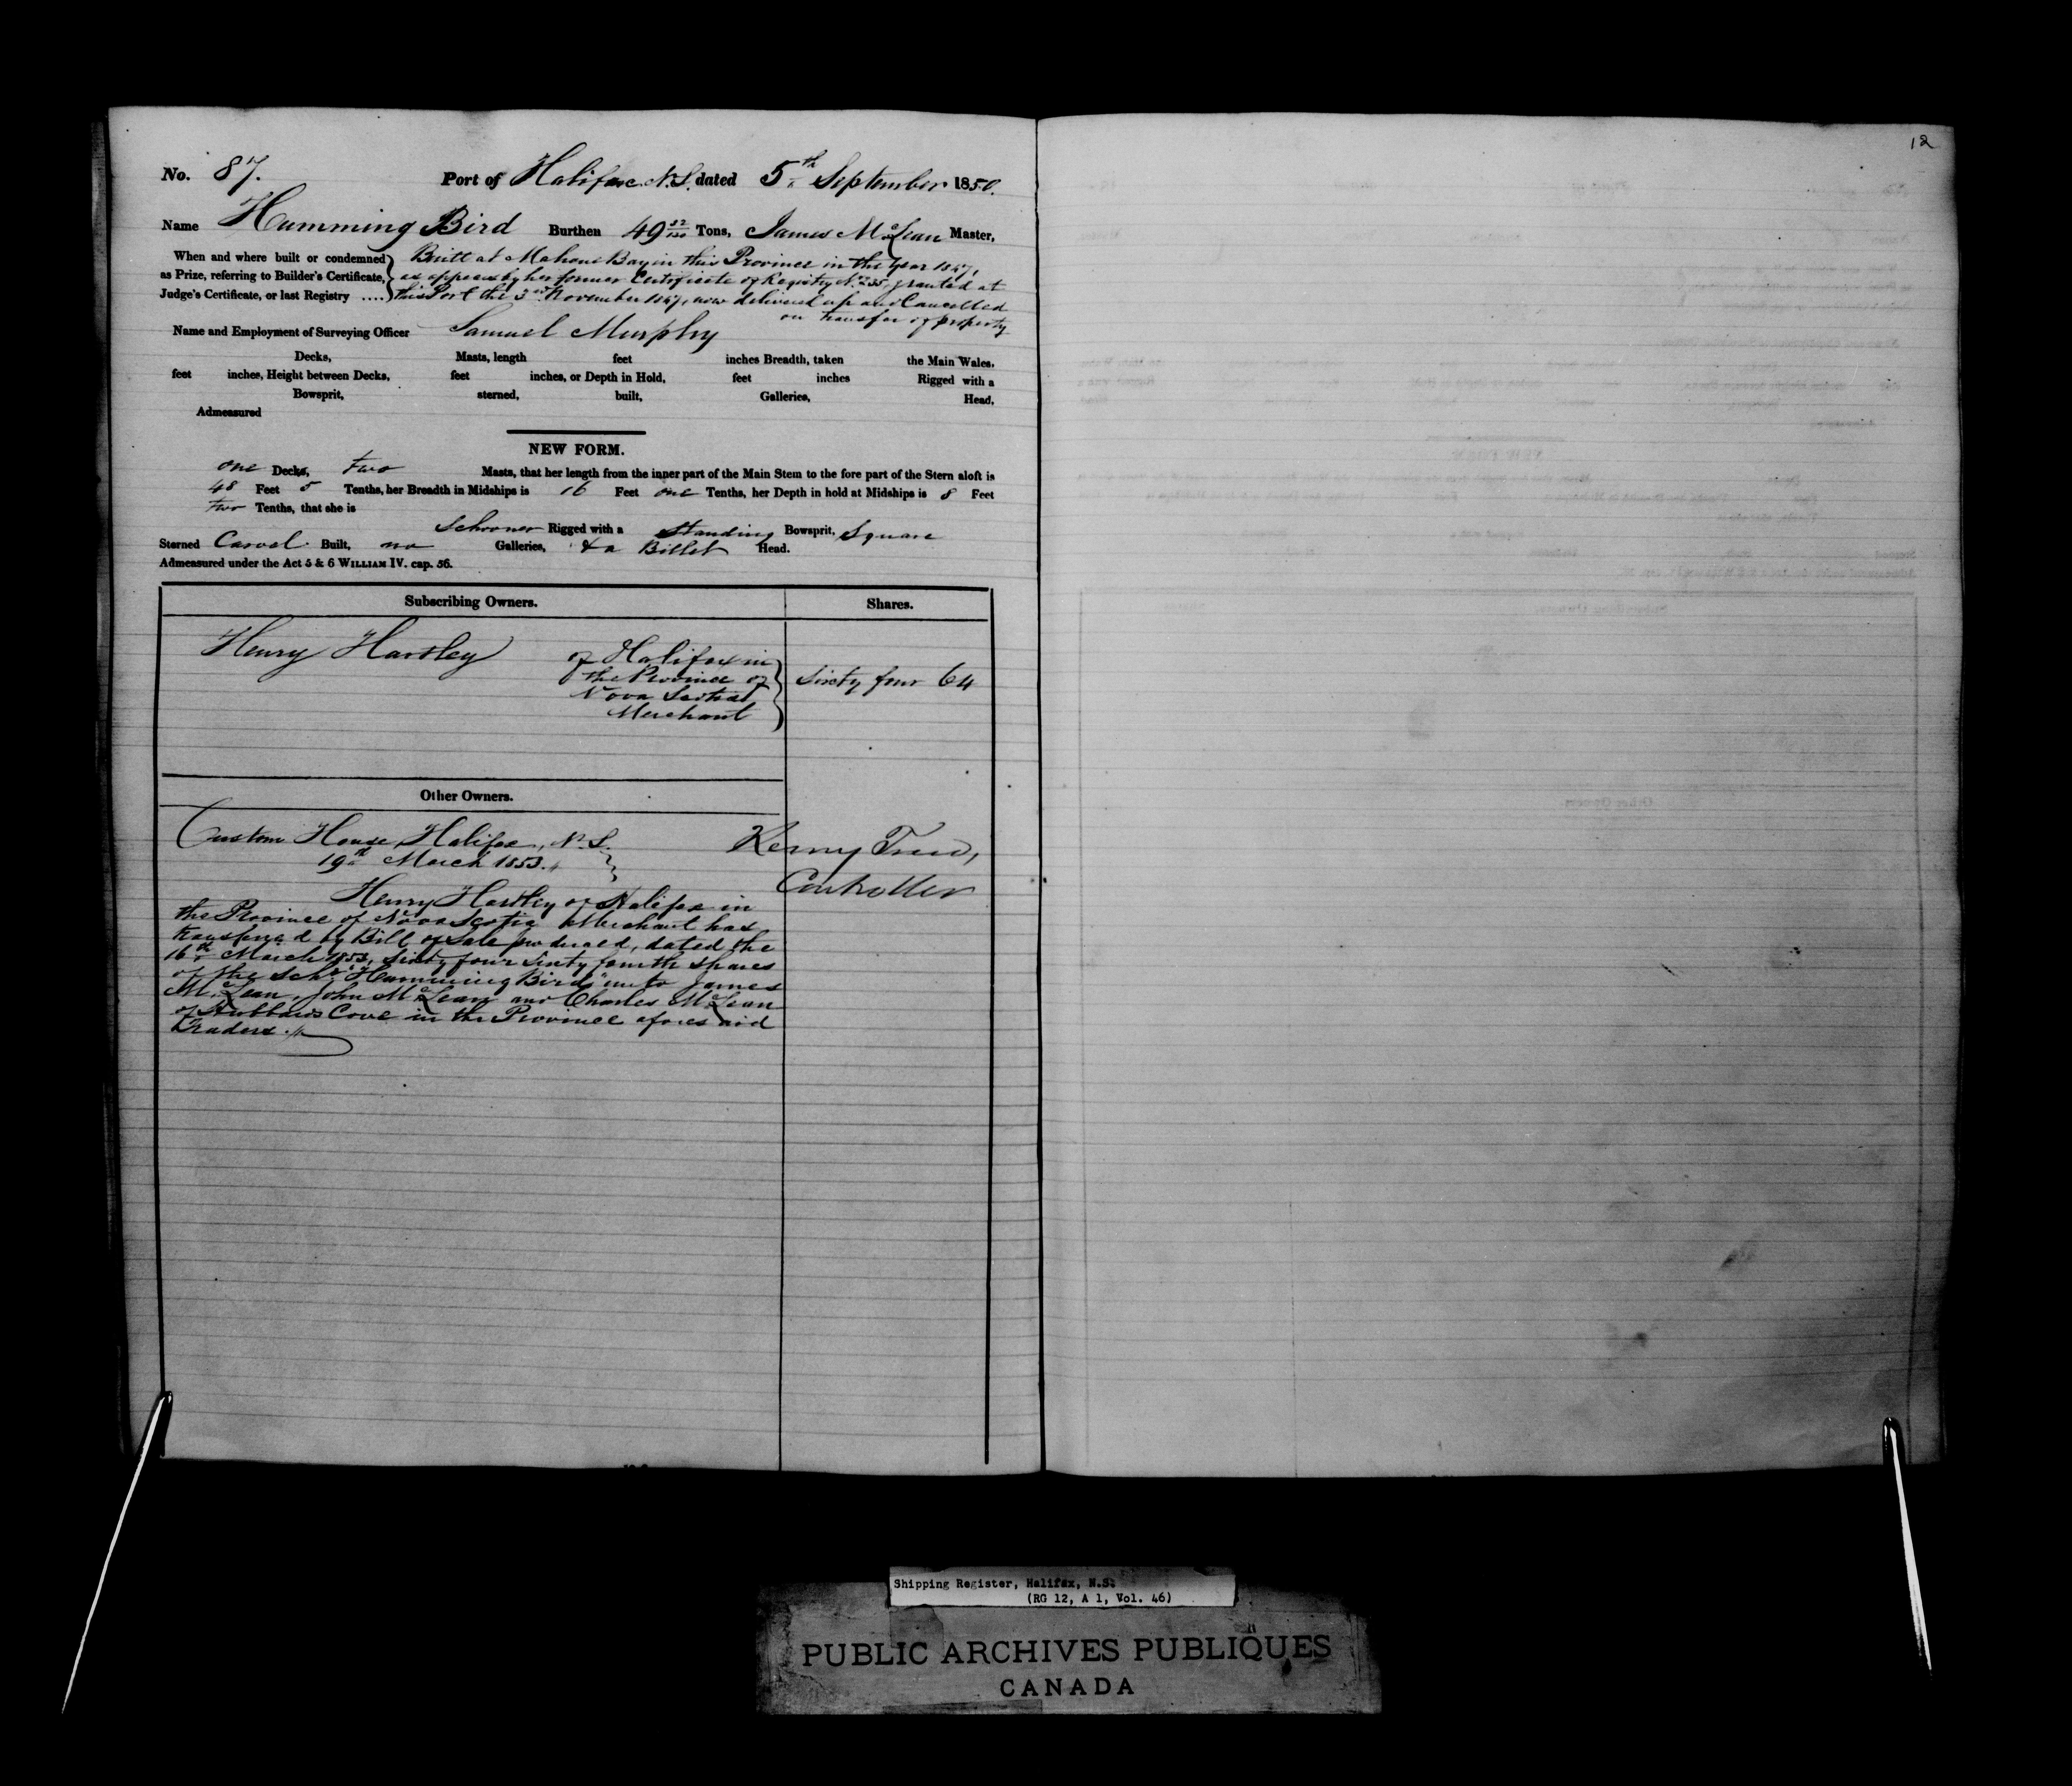 12
No. 87. Port of Halifax N.S. dated 5th September 1850.
Name Humming Bird Burthen 49 Tons, James McLean Master,
When and where built or condemned as Prize, referring to Builder's Certificate, Judge's Certificate, or last Registry ....
Built at Mahone Bay in this Province in the Year 1847,
as appears by her former Certificate of Registry No. 235, granted at
this Port the 3rd November 1847, now delivered up and Cancelled
on transfer of property
Name and Employment of Surveying Officer Samuel Murphy
Decks, Masts, length feet inches Breadth, taken the Main Wales,
feet inches, Height between Decks, feet inches, or Depth in Hold, feet inches Rigged with a
Bowsprit, sterned, built, Galleries, Head,
Admeasured
NEW FORM.
one Decks, two Masts, that her length from the inner part of the Main Stem to the fore part of the Stern aloft is
48 Feet 5 Tenths, her Breadth in Midships is 16 Feet one Tenths, her Depth in hold at Midships is 8 Feet
two Tenths, that she is
Schooner Rigged with a Standing Bowsprit, Square
Sterned Carvel Built, no Galleries, & a Billet Head.
Admeasured under the Act 5 & 6 WILLIAM IV. cap. 56.
Subscribing Owners. Shares.
Henry Hartley of Halifax in
the Province of
Nova Scotia
Merchant
Sixty four 64
Other Owners.
Custom House, Halifax, N.S.
19th March 1853.
Controller
Henry Hartley of Halifax in
the Province of Nova Scotia Merchant has
transferred by Bill of Sale produced, dated the
16th March 1853, sixty four sixty fourth shares
of the Schr "Humming Bird" unto James
McLean, John McLean and Charles McLean
of Hubbards Cove in the Province aforesaid
Traders.
Shipping Register, Halifax, N.S.
(RG 12, A 1, Vol. 46)
PUBLIC ARCHIVES PUBLIQUES
CANADA